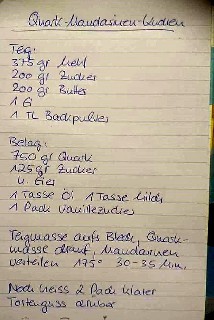 Quark-Mandarinen-Kuchen
Teig:
375 gr Mehl
200 gr Zucker
200 gr Butter
1 Ei
1 TL Backpulver
Belag:
750 gr Quark
125 gr Zucker
4 Eier
1 Tasse Öl 1 Tasse Milch
1 Pack Vanillezucker
Teigmasse aufs Blech, Quark-
masse drauf, Mandarinen
verteilen 175° 30-35 Min.
Noch heiss 2 Pack klarer
Tortenguss drüber